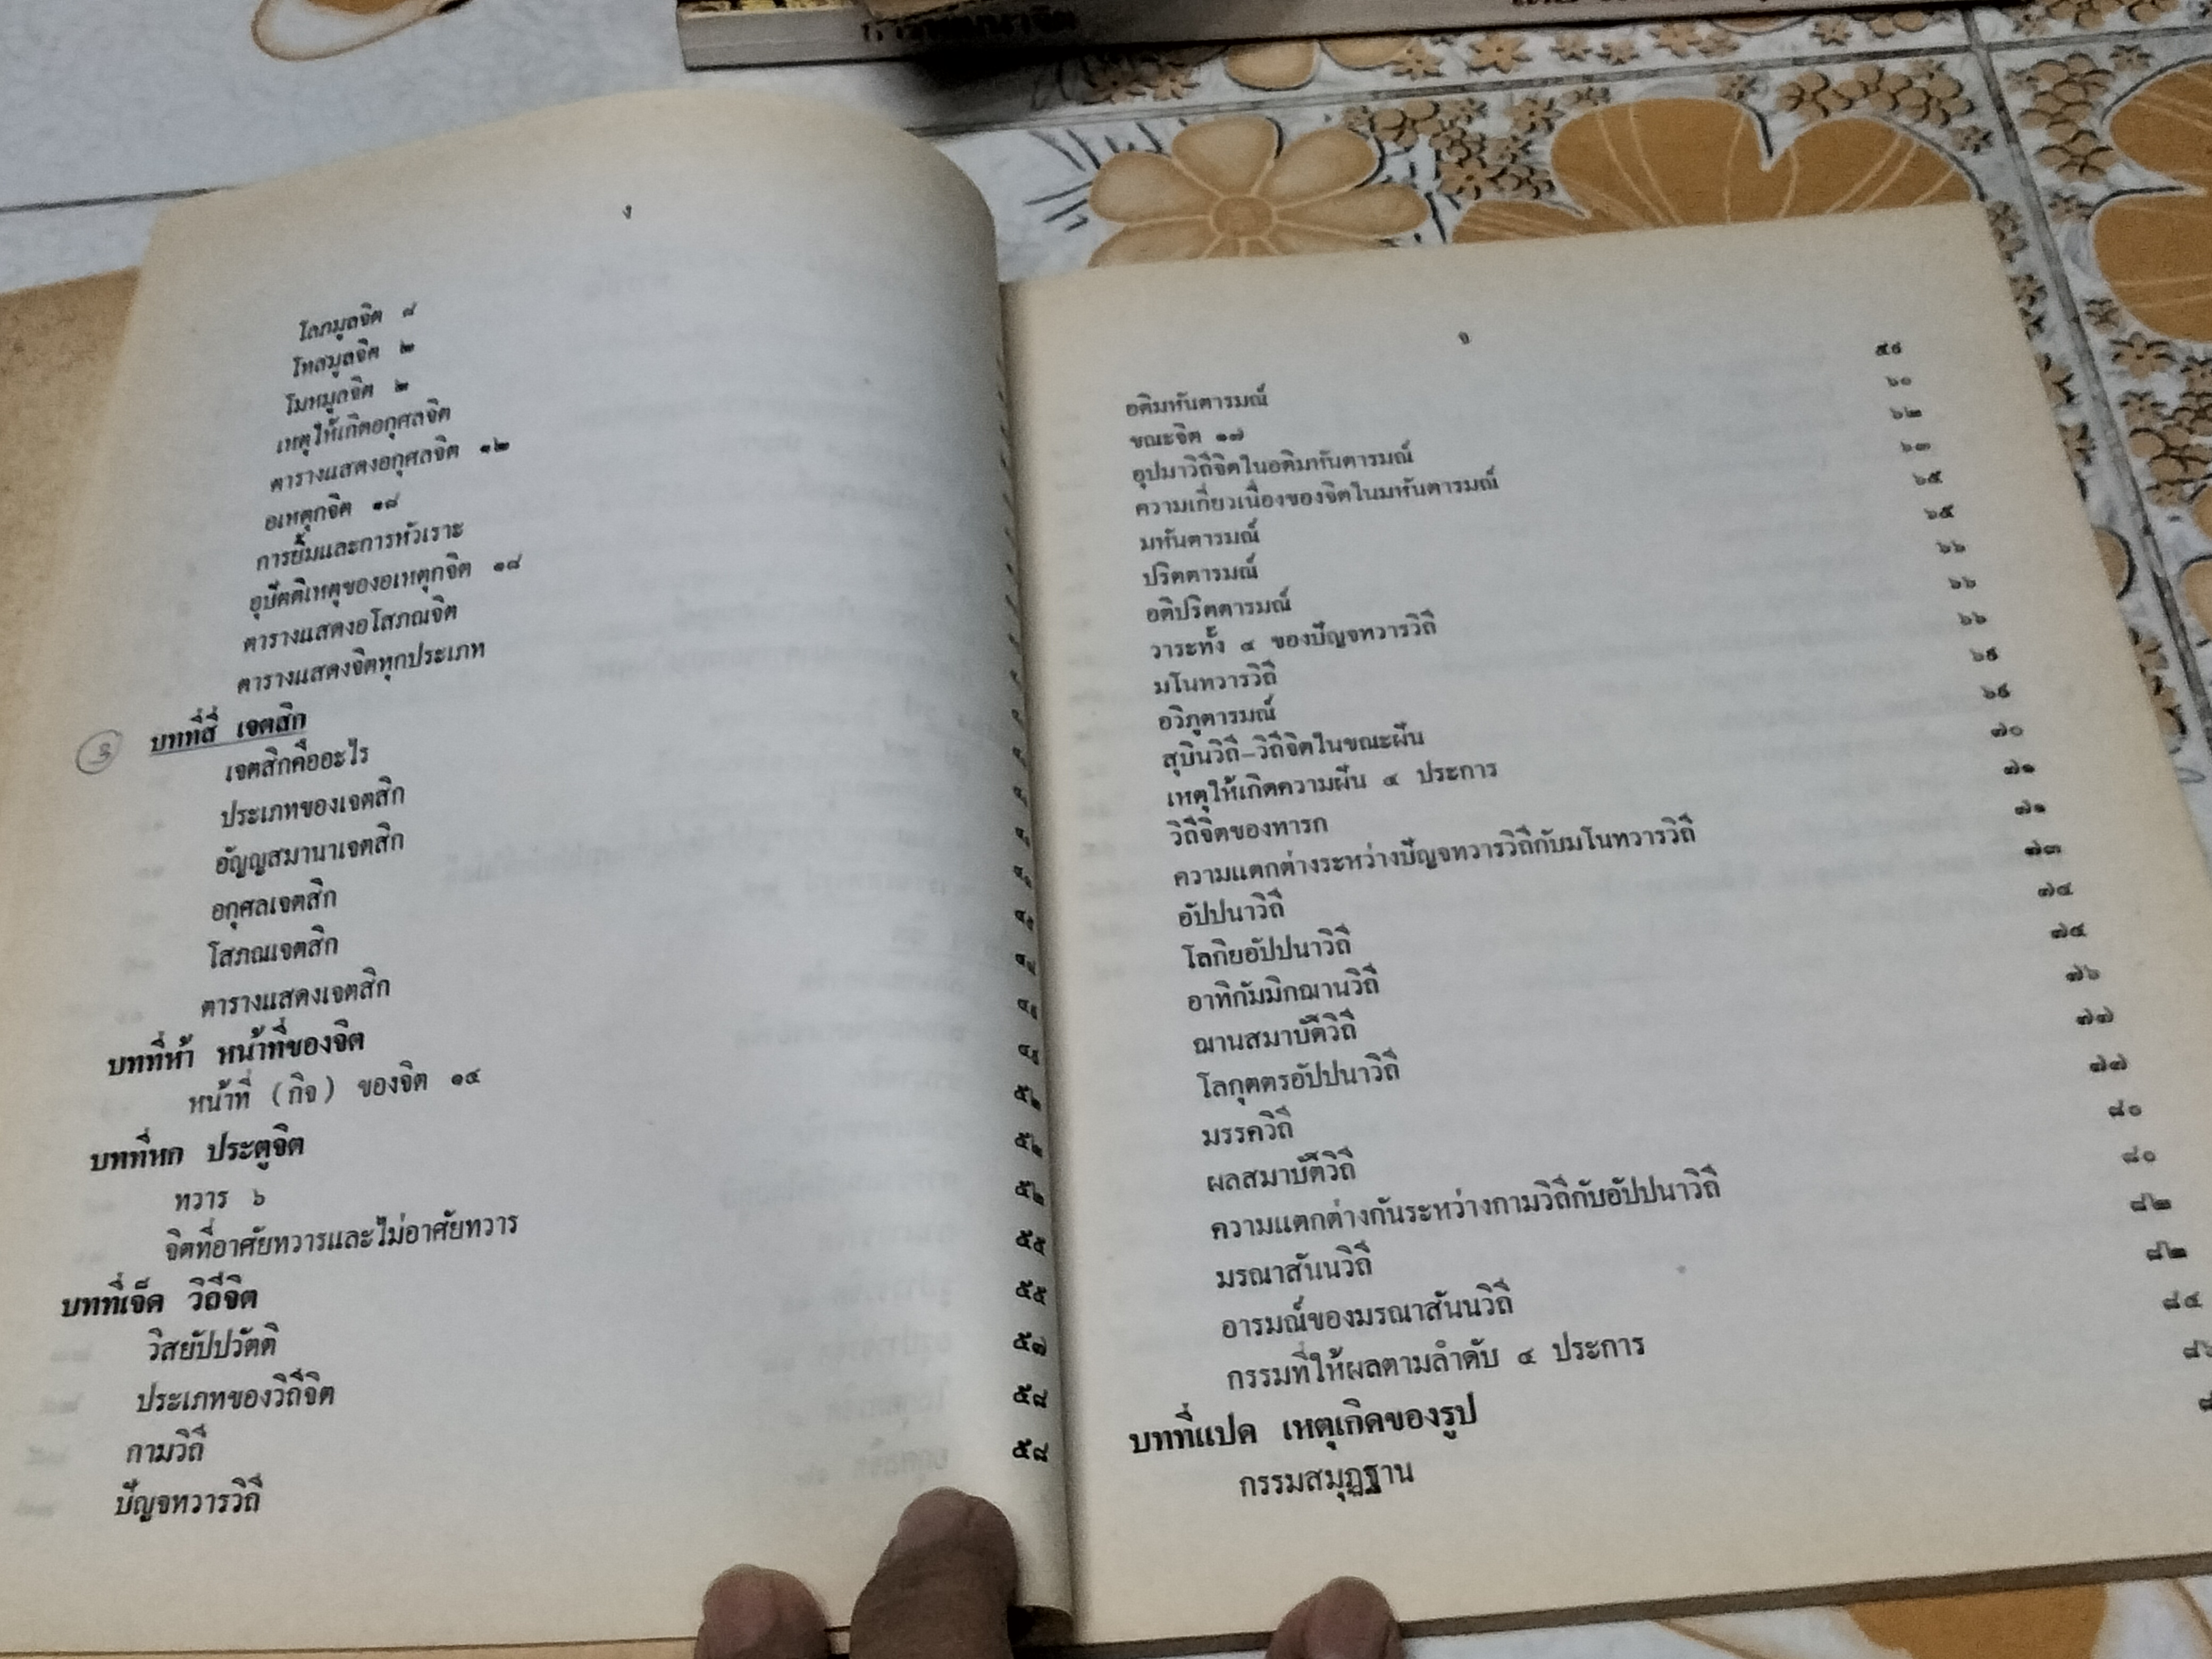 ง
โลภมูลจิต ๘
โทสมูลจิต ๒
โมหมูลจิต ๒
เหตุให้เกิดอกุศลจิต
ตารางแสดงอกุศลจิต ๑๒
อเหตุกจิต ๑๘
การยิ้มและการหัวเราะ
อุปัตติเหตุของอเหตุกจิต ๑๘
ตารางแสดงอโสภณจิต
ตารางแสดงจิตทุกประเภท
บทที่สี่ เจตสิก
เจตสิกคืออะไร
ประเภทของเจตสิก
อัญญสมานาเจตสิก
อกุศลเจตสิก
โสภณเจตสิก
ตารางแสดงเจตสิก
บทที่ห้า หน้าที่ของจิต
หน้าที่ (กิจ) ของจิต ๑๔ ๕๒
บทที่หก ประตูจิต ๕๒
ทวาร ๖ ๕๒
จิตที่อาศัยทวารและไม่อาศัยทวาร ๕๕
บทที่เจ็ด วิถีจิต ๕๕
วิสยัปปวัตติ ๕๗
ประเภทของวิถีจิต ๕๘
กามวิถี ๕๘
ปัญจทวารวิถี
จ
อติมหันตารมณ์ ๕๘
ขณะจิต ๑๗ ๖๐
อุปมาวิถีจิตในอติมหันตารมณ์ ๖๒
ความเกี่ยวเนื่องของจิตในมหันตารมณ์ ๖๓
มหันตารมณ์ ๖๕
ปริตตารมณ์ ๖๕
อติปริตตารมณ์ ๖๖
วาระทั้ง ๔ ของปัญจทวารวิถี ๖๖
มโนทวารวิถี ๖๖
อวิภูตารมณ์ ๖๙
สุบินวิถี–วิถีจิตในขณะฝัน ๖๙
เหตุให้เกิดความฝัน ๔ ประการ ๗๐
วิถีจิตของทารก ๗๑
ความแตกต่างระหว่างปัญจทวารวิถีกับมโนทวารวิถี ๗๑
อัปปนาวิถี ๗๓
โลกิยอัปปนาวิถี ๗๔
อาทิกัมมิกฌานวิถี ๗๔
ฌานสมาบัติวิถี ๗๖
โลกุตตรอัปปนาวิถี ๗๗
มรรควิถี ๗๗
ผลสมาบัติวิถี ๘๐
ความแตกต่างกันระหว่างกามวิถีกับอัปปนาวิถี ๘๐
มรณาสันนวิถี ๘๒
อารมณ์ของมรณาสันนวิถี ๘๒
กรรมที่ให้ผลตามลำดับ ๔ ประการ ๘๔
บทที่แปด เหตุเกิดของรูป
กรรมสมุฏฐาน